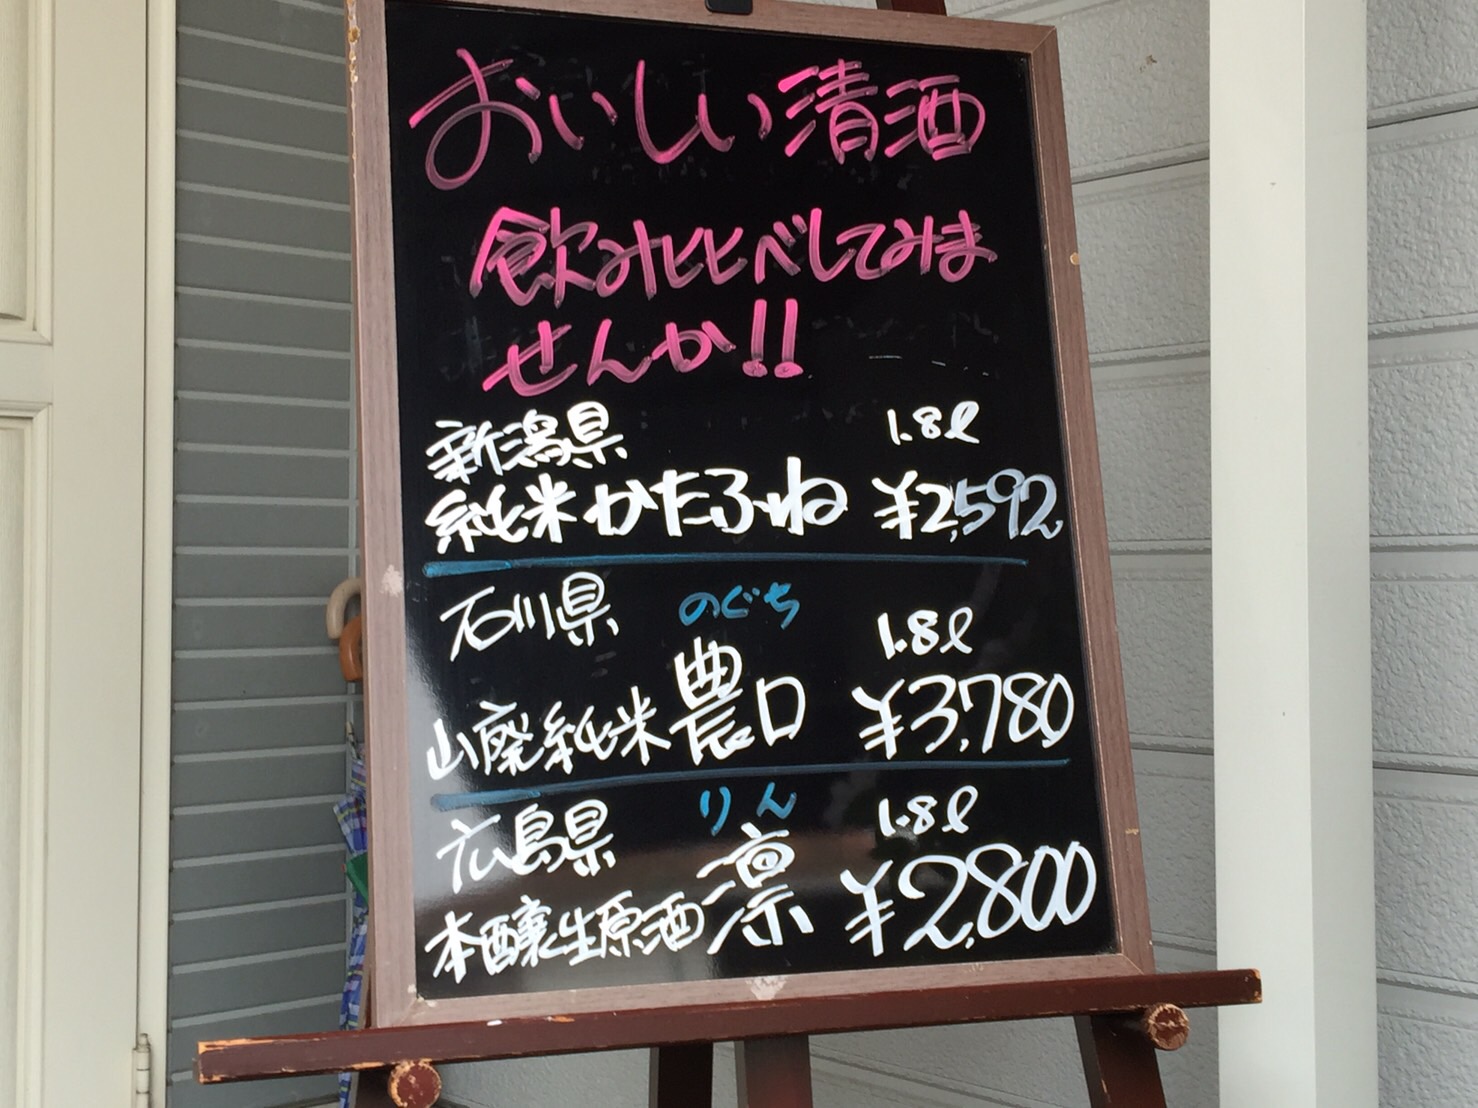 おいしい清酒
飲み比べしてみま
せんか!!
新潟県 1.8ℓ
純米かたふね ¥2,592
石川県 のぐち 1.8ℓ
山廃純米農口 ¥3,780
広島県 りん 1.8ℓ
本醸生原酒凛 ¥2,800